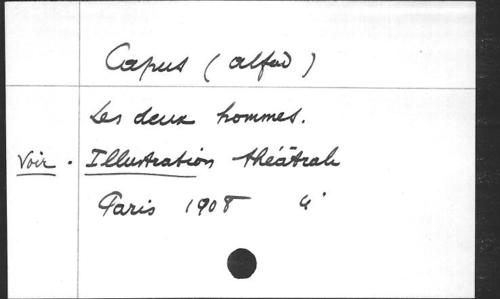 Capus (Alfred)
Les deux hommes.
Voir . Illustration théâtrale
Paris 1908 4°